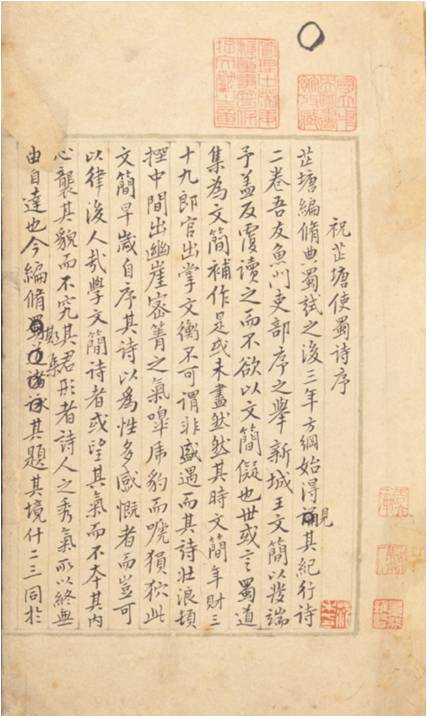 祝芷塘使蜀詩序
芷塘編脩典蜀試之後三年方綱始得見其紀行詩
二卷吾友魚門吏部序之舉新城王文簡以發端
予蓋反覆讀之而不欲以文簡儗也世或言蜀道
集為文簡補作是或未盡然然其時文簡年財三
十九郎官出掌文衡不可謂非盛遇而其詩壯浪頓
挫中間出幽崖密箐之氣嘷虎豹而唬猿狖此
文簡早歲自序其詩以為性多感慨者而豈可
以律後人哉學文簡詩者或望其氣而不本其內
心襲其貌而不究其君形者詩人之秀氣所以終無
由自達也今編脩其集其題其境什二三同於